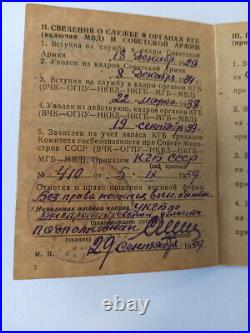 II. СВЕДЕНИЯ О СЛУЖБЕ В ОРГАНАХ КГБ
(включая МВД) И СОВЕТСКОЙ АРМИИ
1. Вступил на службу в кадры Советской
Армии 18 декабря 29
2. Уволен из кадров Советской Армии
8 декабря 31
3. Вступил на службу в кадры органов КГБ
(ВЧК—ОГПУ—НКВД—НКГБ—МГБ—МВД)
22 марта 38
4. Уволен из действующих, кадров органов КГБ
(ВЧК—ОГПУ—НКВД—НКГБ—МГБ—МВД)
19 сентября 59
5. Зачислен на учет запаса КГБ приказом
Комитета госбезопасности при Совете Минис-
тров СССР (ВЧК—ОГПУ—НКВД—НКГБ—
МГБ—МВД). Приказом КГБ СССР
№ 410 от 5. IX 1959
Отметка о праве ношения военной формы
Без права ношения
Начальник отдела кадров УКГБ по
области
подполковник
(звание)
29 сентября 59
М. П.
2